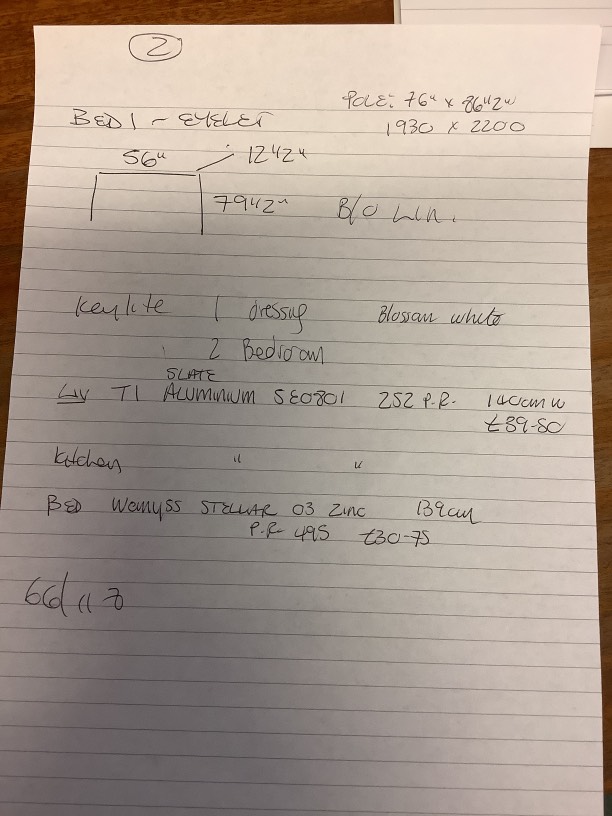 2
POLE: 76" x 86 1/2"
BED 1 - EYELET
1930 x 2200
56"
12 1/2"
79 1/2"
B/O Lin.
Keylite 1 dressing Blossom white
2 Bedroom
SLATE
LIV T1 ALUMINIUM SE0801 252 P.R. 140cm W
£39-80
Kitchen " "
BED Wemyss STELLAR 03 Zinc 139cm
P.R 495 £30-75